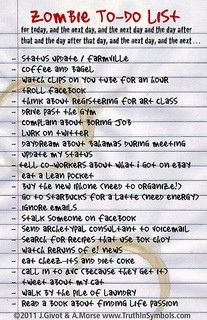 Zombie To-Do List
for today, and the next day, and the next day and the day after
that and the day after that day, and the next day, and the next . . .
- Status update / Farmville
- coffee and bagel
- watch clips on You Tube for an hour
- troll Facebook
- think about registering for art class
- drive past the gym
- complain about boring job
- lurk on twitter
- daydream about Bahamas during meeting
- update my status
- tell co-workers about what I got on ebay
- eat a Lean Pocket
- buy the new iPhone (need to organize!)
- go to Starbucks for a latte (need energy)
- ignore emails
- stalk someone on Facebook
- send archetypal consultant to voicemail
- search for recipes that use bok choy
- watch reruns of E! news
- eat cheez-its and diet coke
- call in to QVC (because they get it)
- tweet about my cat
- walk by the pile of laundry
- Read a book about finding life passion
©2011 J.Givot & A.Morse www.TruthInSymbols.com